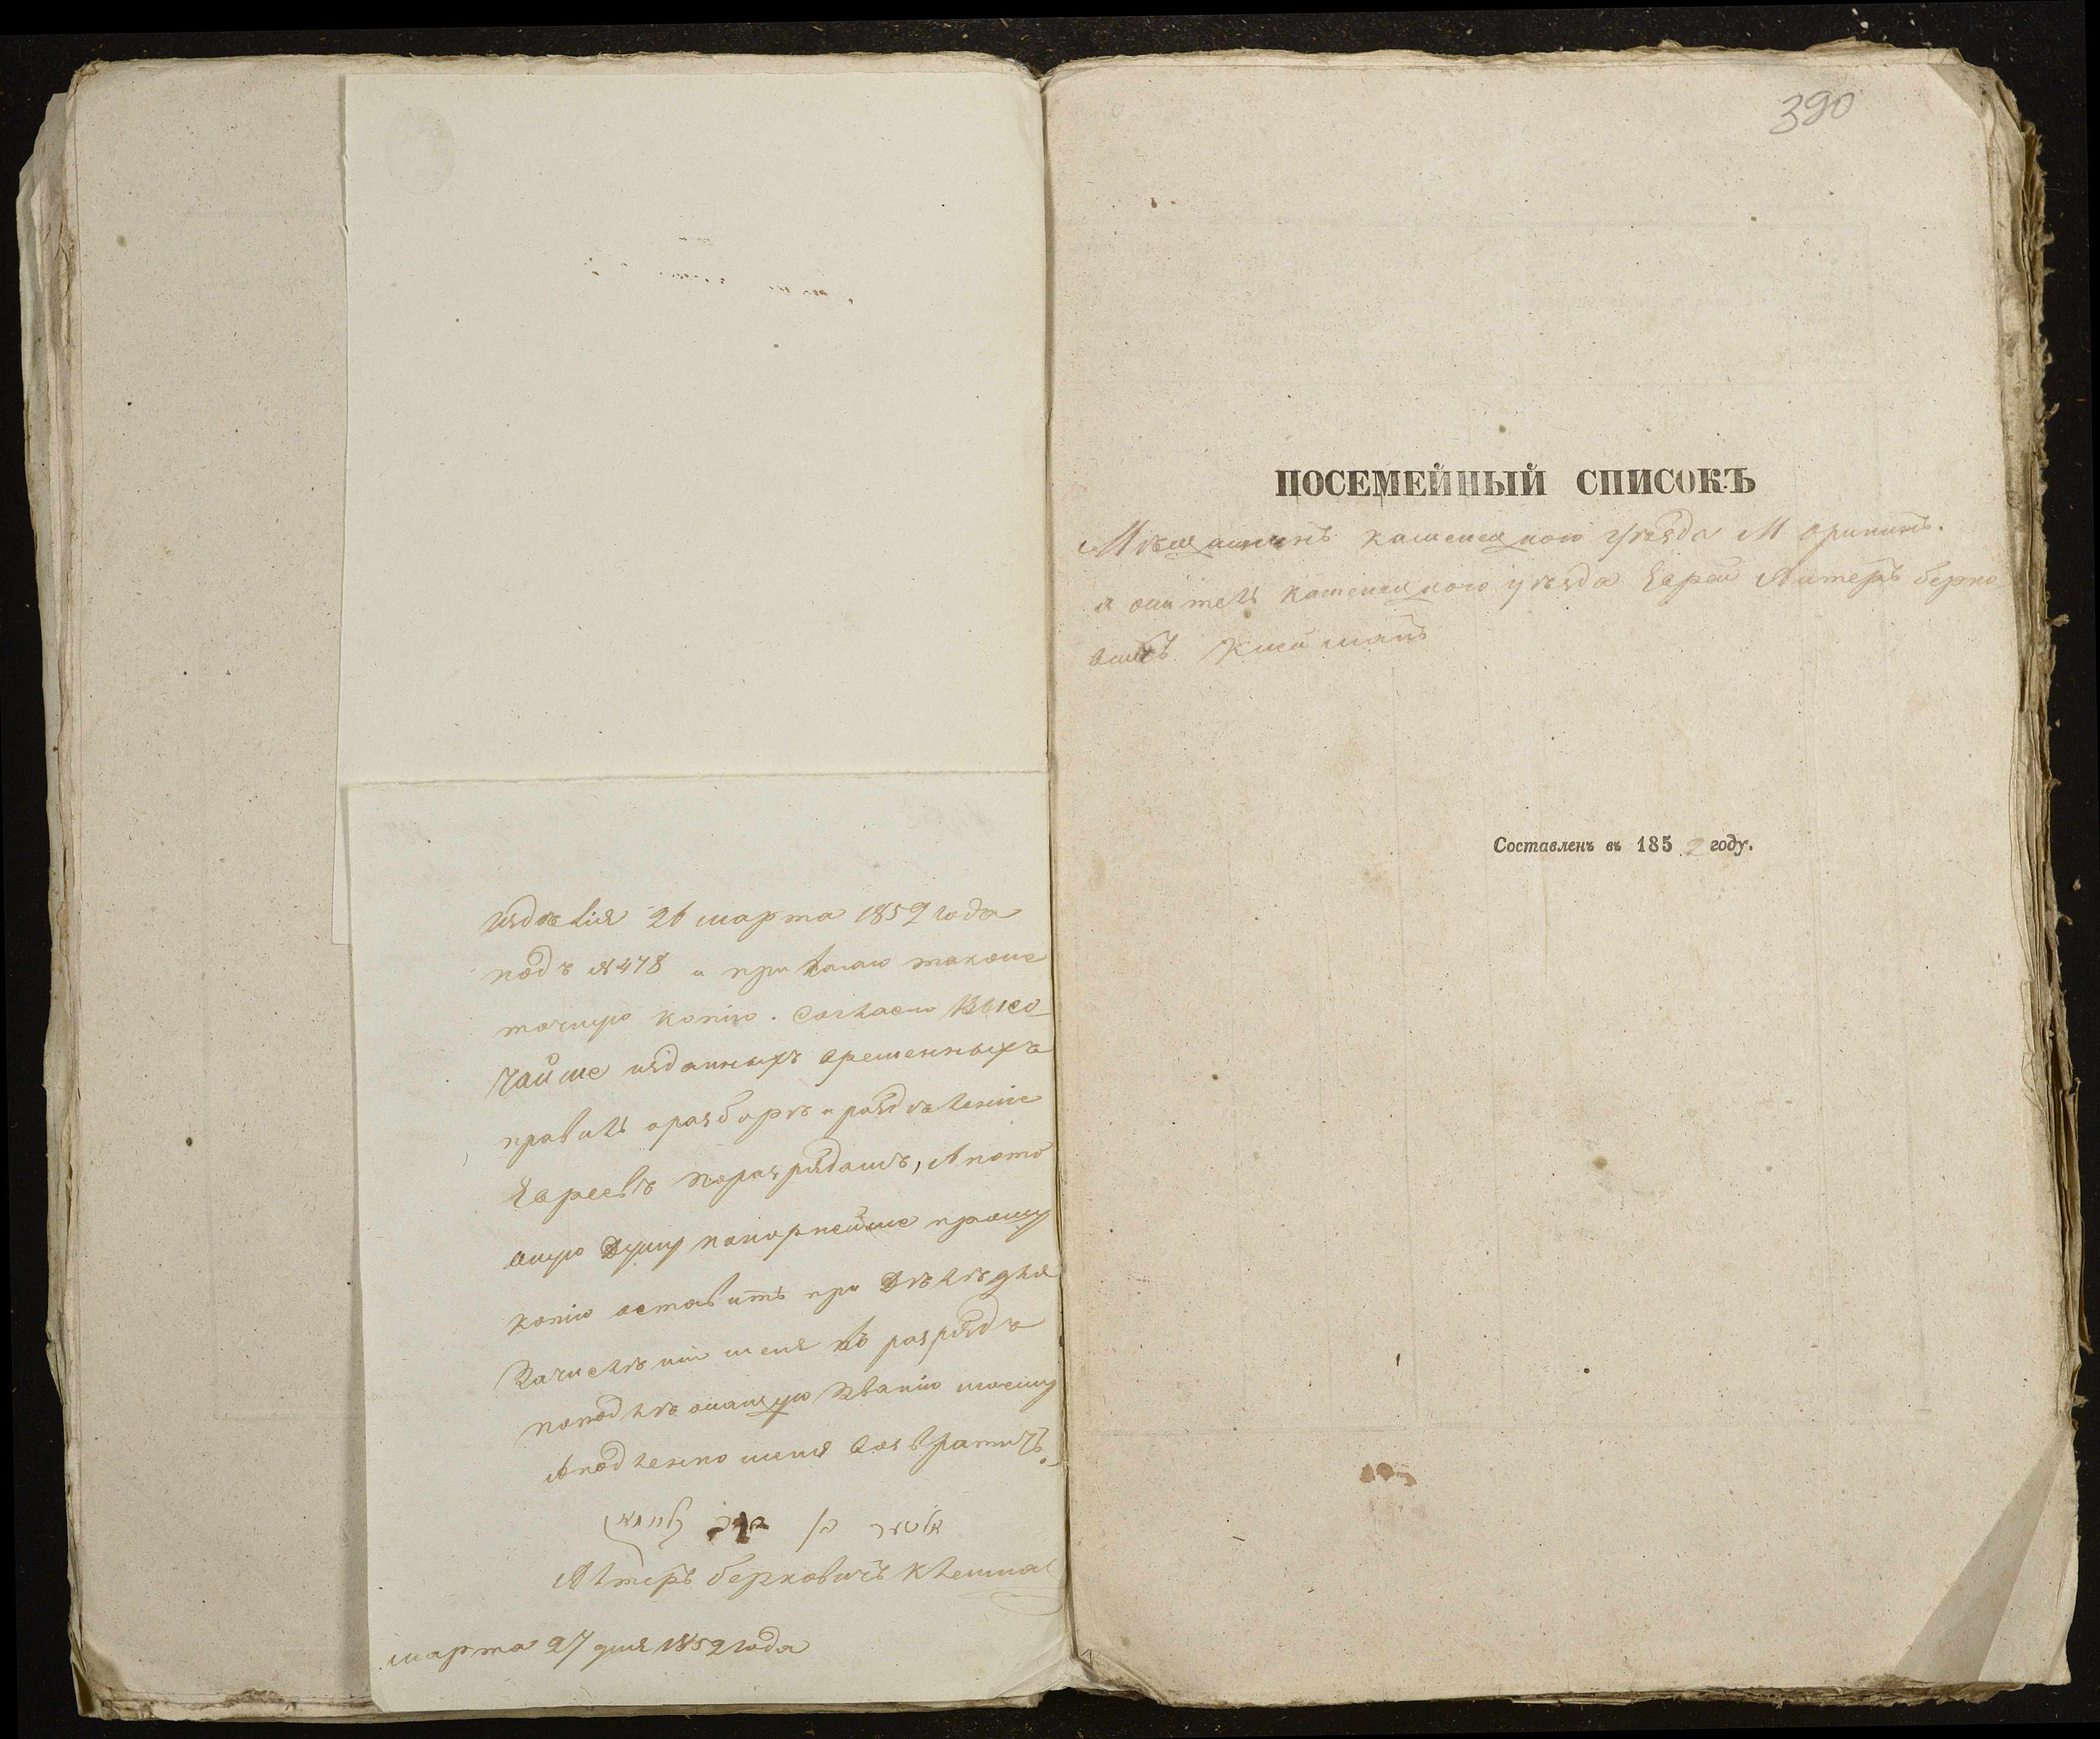 издѣлія 26 марта 1852 года
подъ №478 и прилагаю таковие
точную копію. Согласно Высо-
чайше изданныхъ временныхъ
правилъ о разборѣ и раздѣленіе
Евреевъ по разрядамъ, А пото
Думу покорнейше прошу
копію оставить при Дѣлѣ для
Зачислѣнія меня въ разрядъ
званію моему
А подленно меня возвратить.
Алтеръ берковичъ Клейма
марта 27 дня 1852 года
390
ПОСЕМЕЙНЫЙ СПИСОКЪ
Мѣщанинъ каменецкого уѣзда М Орининъ.
житель каменецкого уѣзда Еврей Алтеръ берко
вичъ Клейманъ
Составленъ въ 1852 году.